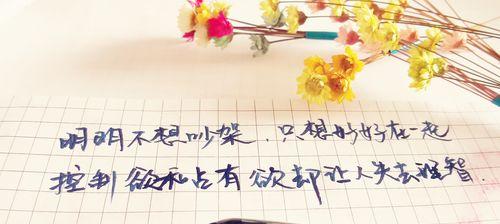 明明不想吵架，只想好好在一起
控制欲和占有欲却让人失去理智.